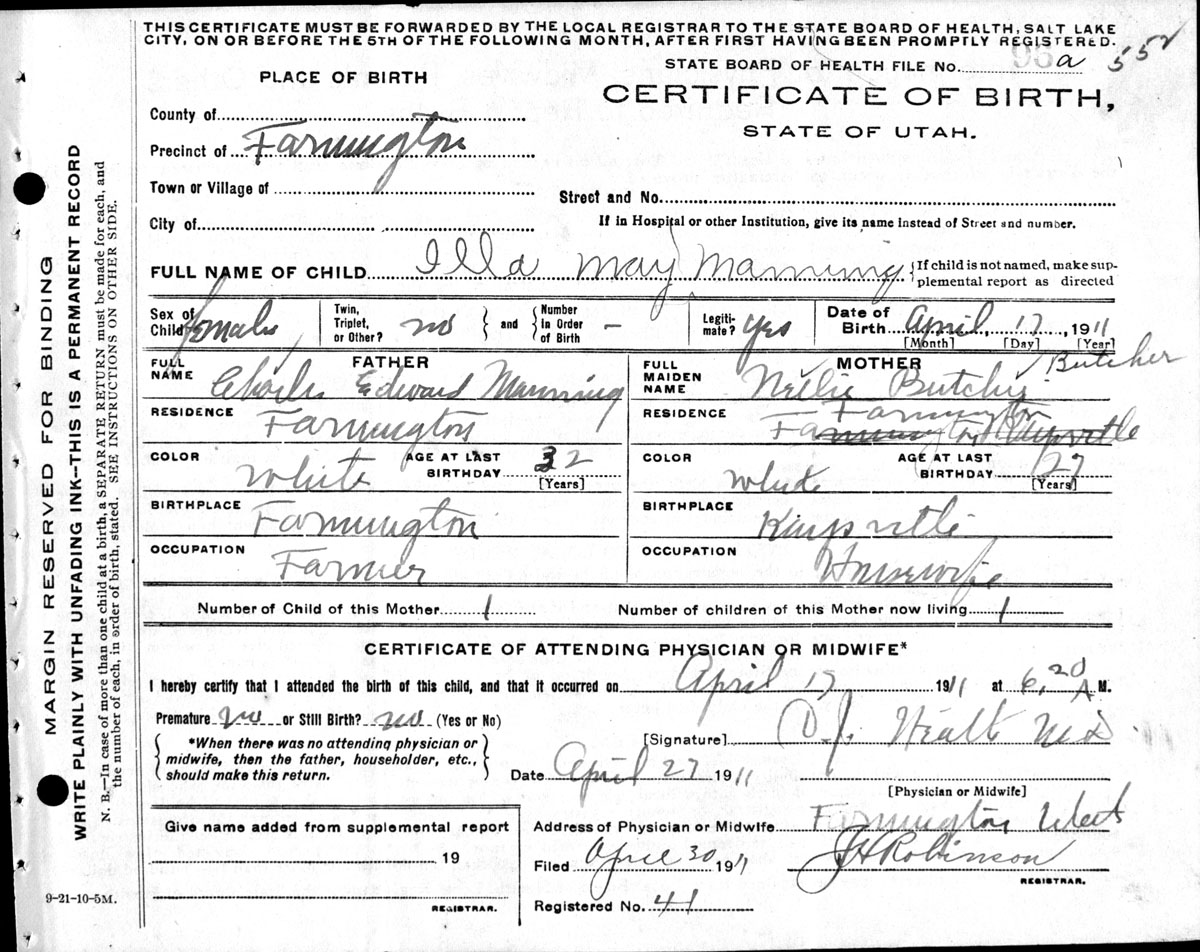 THIS CERTIFICATE MUST BE FORWARDED BY THE LOCAL REGISTRAR TO THE STATE BOARD OF HEALTH, SALT LAKE
CITY, ON OR BEFORE THE 5TH OF THE FOLLOWING MONTH, AFTER FIRST HAVING BEEN PROMPTLY REGISTERED.
STATE BOARD OF HEALTH FILE No. 95 a 552
PLACE OF BIRTH
CERTIFICATE OF BIRTH,
STATE OF UTAH.
County of
Precinct of Farmington
Town or Village of
Street and No.
City of
If in Hospital or other Institution, give its name instead of Street and number.
FULL NAME OF CHILD Illa May Manning {If child is not named, make sup-
plemental report as directed
Sex of Child female Twin, Triplet, or Other? no } and { Number in Order of Birth – Legiti-mate? Yes Date of Birth April, 17 1911
[Month] [Day] [Year]
FATHER
FULL NAME Charles Edward Manning
RESIDENCE Farmington
COLOR White AGE AT LAST BIRTHDAY 32
[Years]
BIRTHPLACE Farmington
OCCUPATION Farmer
MOTHER
Butcher
FULL MAIDEN NAME Nellie
RESIDENCE Farmington
Farmington
COLOR White AGE AT LAST BIRTHDAY 27
[Years]
BIRTHPLACE
OCCUPATION Housewife
Number of Child of this Mother 1 Number of children of this Mother now living 1
CERTIFICATE OF ATTENDING PHYSICIAN OR MIDWIFE*
I hereby certify that I attended the birth of this child, and that it occurred on April 17 1911 at 6,20 A M.
Premature no or Still Birth? no (Yes or No)
{ *When there was no attending physician or
midwife, then the father, householder, etc.,
should make this return. }
[Signature] M D
Date April 27 1911
[Physician or Midwife]
Give name added from supplemental report
19
REGISTRAR.
Address of Physician or Midwife Farmington Utah
Filed April 30, 1911 J H Robinson
REGISTRAR.
Registered No. 41
9-21-10-5M.
MARGIN RESERVED FOR BINDING
WRITE PLAINLY WITH UNFADING INK—THIS IS A PERMANENT RECORD
N. B.—In case of more than one child at a birth, a SEPARATE RETURN must be made for each, and
the number of each, in order of birth, stated. SEE INSTRUCTIONS ON OTHER SIDE.